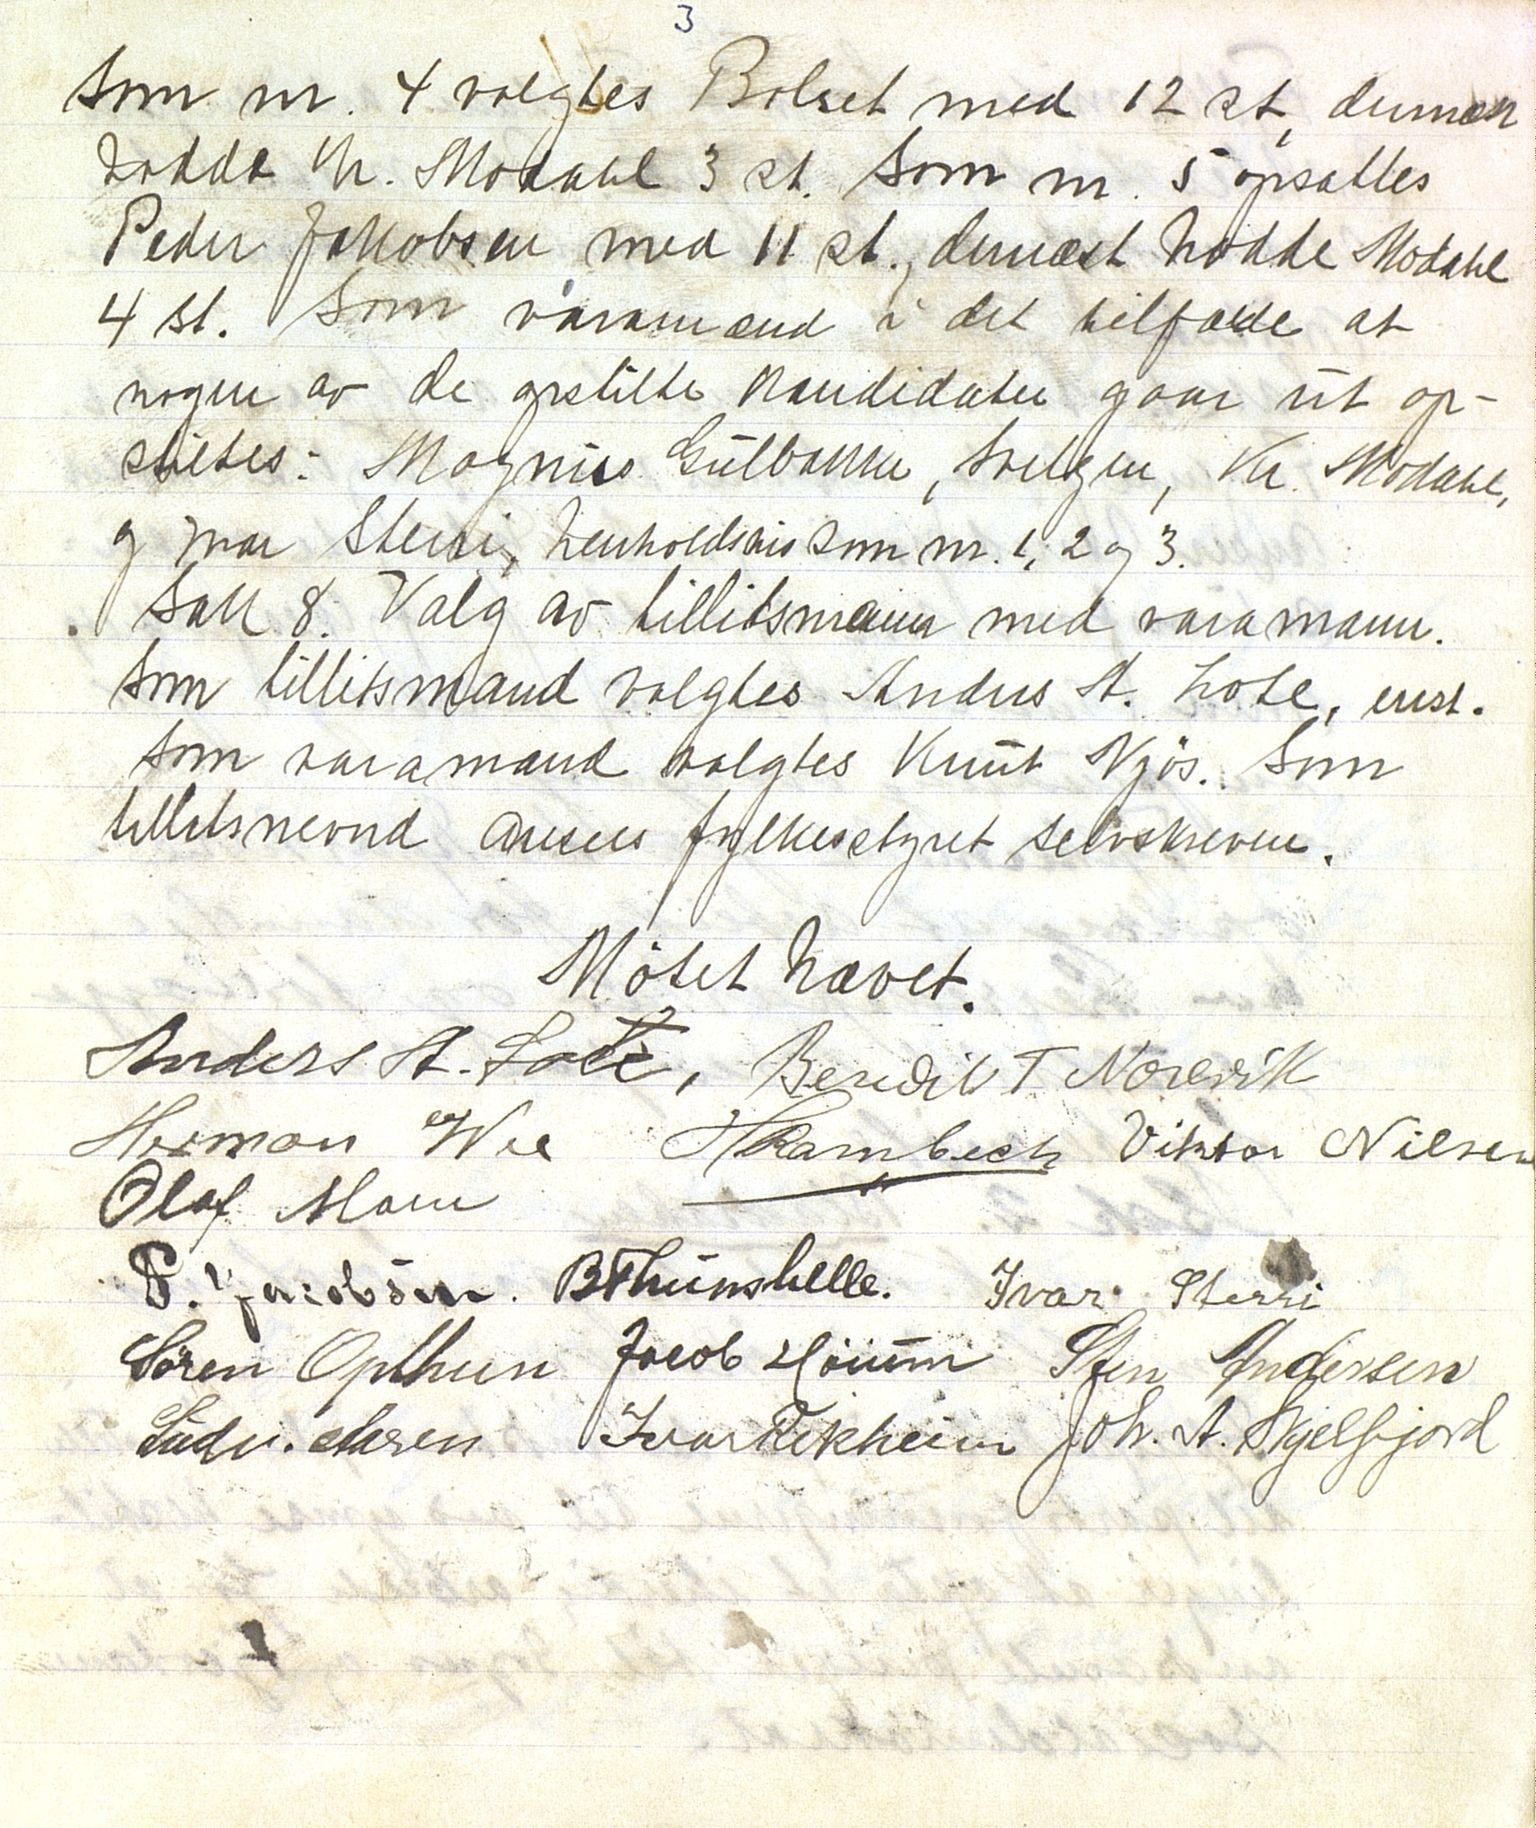 3
Som nr. 4 valgtes Bolset med 12 st, dernæst
hadde Kr. Modahl 3 st. Som nr. 5 opsattes
Peder Jakobsen med 11 st., dernæst hadde Modahl
4 st. Som varamænd i det tilfælde at
nogen av de opstilte kandidater gaar ut op-
stiltes: Magnus Gulbakke, Svelgen, Kr. Modahl,
og Ivar Sterri, henholdsvis som nr. 1, 2 og 3.
Sak 8. Valg av tillitsmann med varamann.
Som tillitsmand valgtes Anders A. Lote, enst.
Som varamand valgtes Knut Njøs. Som
tillitsnevnd ansees fylkesstyret selvskreven.
Møtet hævet.
Anders A. Lote, Benedikt T Nordvik
Herman Wee HKambech Viktor Nilsen
Olaf Moen
P. Jacobsen. BThunshelle. Ivar Sterri
Søren Opthun Jacob Høium Sten Andersen
Ludv. Øhren Ivar Rekheim Joh. A. Skjelfjord